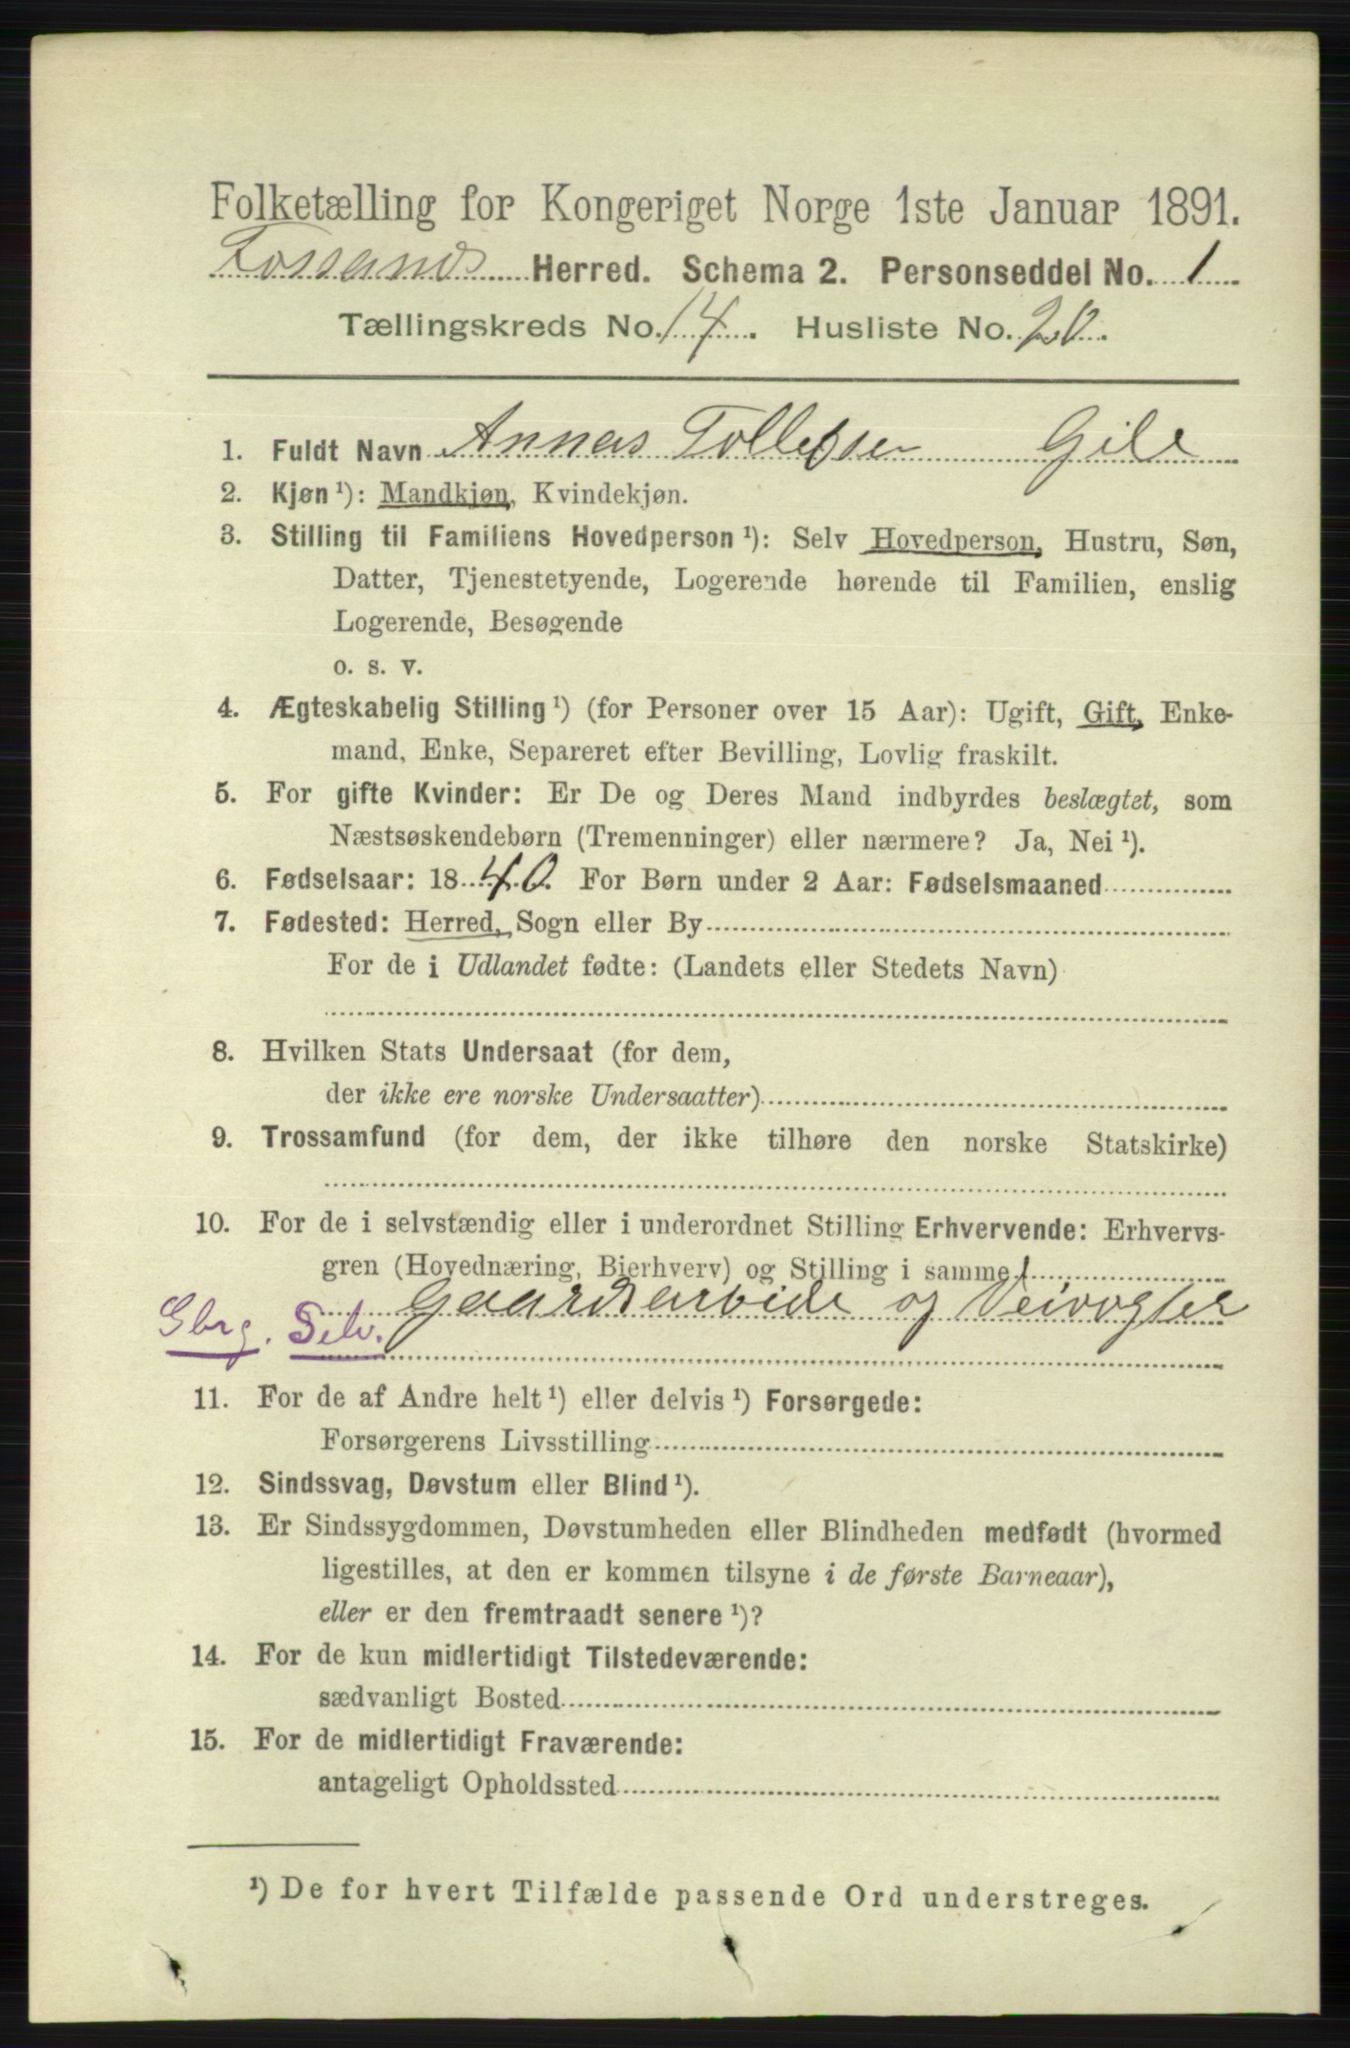 Folketælling for Kongeriget Norge 1ste Januar 1891.
Fossands Herred. Schema 2. Personseddel No. 1
Tællingskreds No. 14. Husliste No. 20.
1. Fuldt Navn Annas Tollefsen Gile
2. Kjøn ¹): Mandkjøn, Kvindekjøn.
3. Stilling til Familiens Hovedperson ¹): Selv Hovedperson, Hustru, Søn,
Datter, Tjenestetyende, Logerende hørende til Familien, enslig
Logerende, Besøgende
o. s. v.
4. Ægteskabelig Stilling ¹) (for Personer over 15 Aar): Ugift, Gift, Enke-
mand, Enke, Separeret efter Bevilling, Lovlig fraskilt.
5. For gifte Kvinder: Er De og Deres Mand indbyrdes beslægtet, som
Næstsøskendebørn (Tremenninger) eller nærmere? Ja, Nei ¹).
6. Fødselsaar: 1840. For Børn under 2 Aar: Fødselsmaaned
7. Fødested: Herred, Sogn eller By
For de i Udlandet fødte: (Landets eller Stedets Navn)
8. Hvilken Stats Undersaat (for dem,
der ikke ere norske Undersaatter)
9. Trossamfund (for dem, der ikke tilhøre den norske Statskirke)
10. For de i selvstændig eller i underordnet Stilling Erhvervende: Erhvervs-
gren (Hovednæring, Bierhverv) og Stilling i samme
Gaardsarbide og Veivogter
Gbrg. Selv.
11. For de af Andre helt ¹) eller delvis ¹) Forsørgede:
Forsørgerens Livsstilling
12. Sindssvag, Døvstum eller Blind ¹).
13. Er Sindssygdommen, Døvstumheden eller Blindheden medfødt (hvormed
ligestilles, at den er kommen tilsyne i de første Barneaar),
eller er den fremtraadt senere ¹)?
14. For de kun midlertidigt Tilstedeværende:
sædvanligt Bosted
15. For de midlertidigt Fraværende:
antageligt Opholdssted
¹) De for hvert Tilfælde passende Ord understreges.